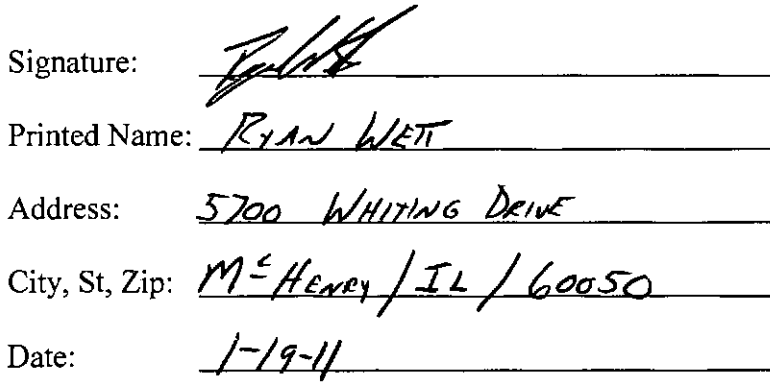 Signature:
Printed Name: RYAN WETT
Address: 5700 WHITING DRIVE
City, St, Zip: McHENRY / IL / 60050
Date: 1-19-11